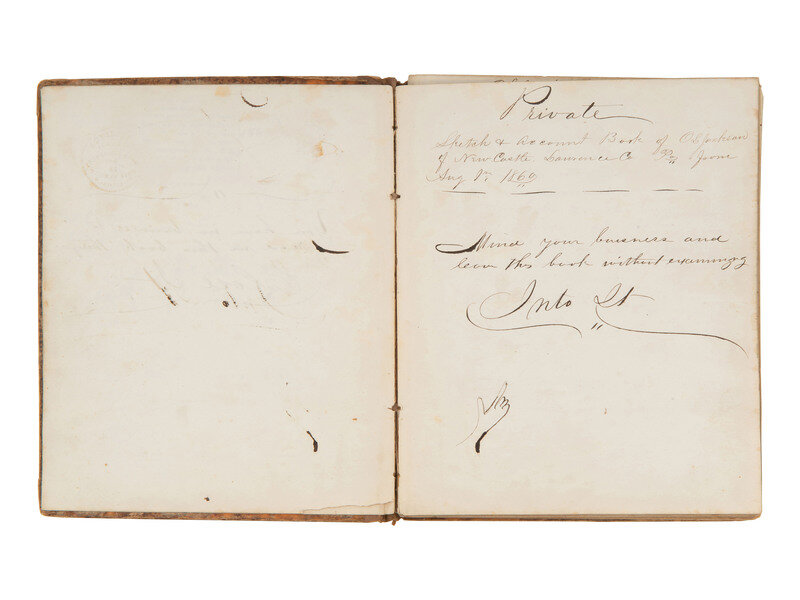 Private
Sketch & Account Book of O.C. Jackson
of New Castle Lawrence Co Pa from
Aug 1st. 1869
Mind your buisness and
leave this book without examining
Into It